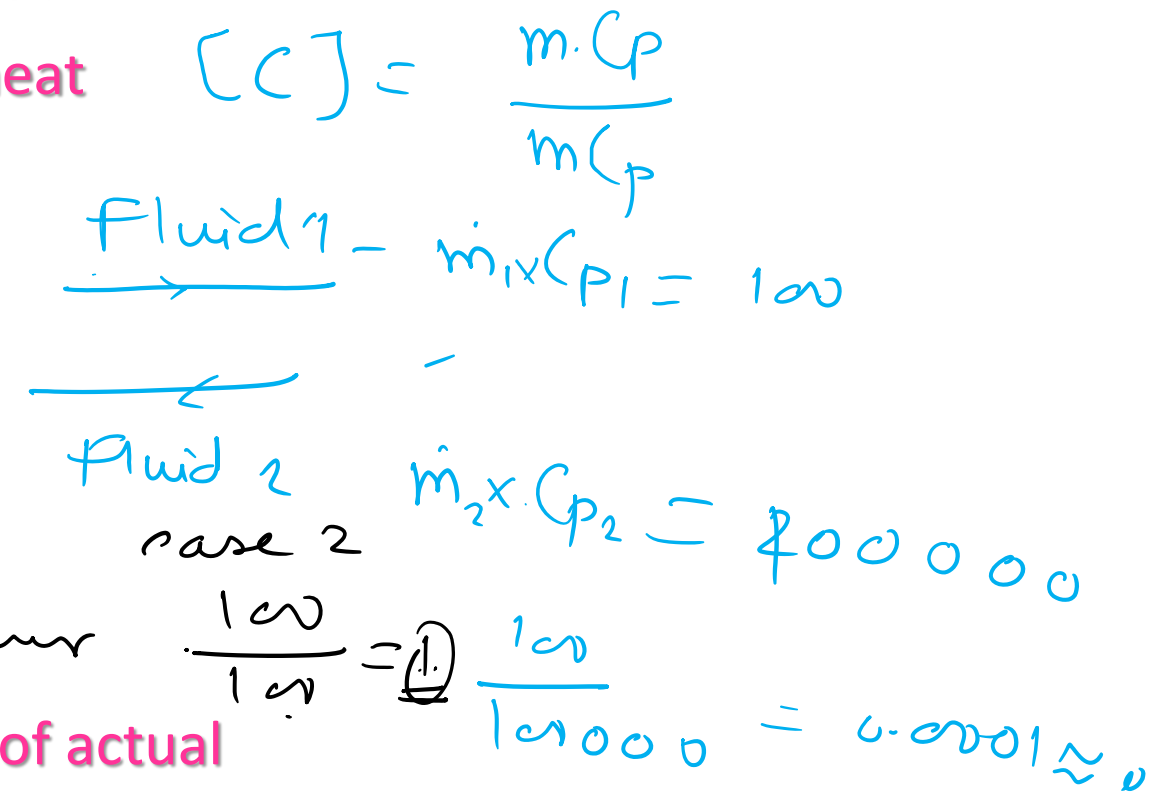 eat [C] = m.Cp / mCp
Fluid 1 - ṁ1xCp1 = 100
Fluid 2 ṁ2x.Cp2 = 100000
case 2
100 / 100 = 1. 100 / 100000 = 0.0001 ≈ 0
of actual